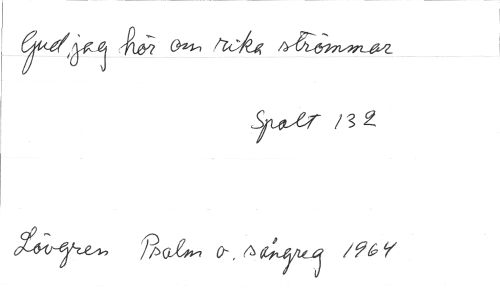 Gud, jag hör om rika strömmar
Spalt 132
Lövgren Psalm o. sångreg 1964